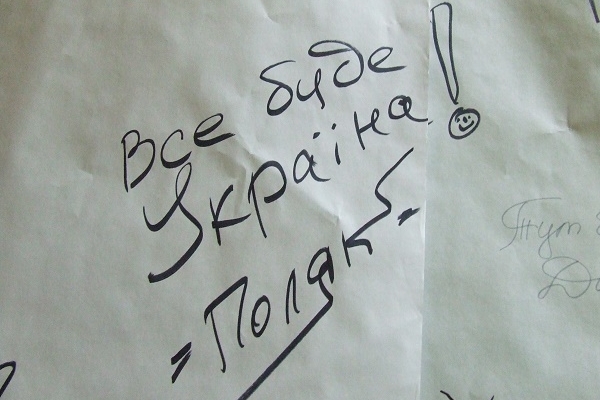 Все буде
Україна!
"Поляк"
Тут